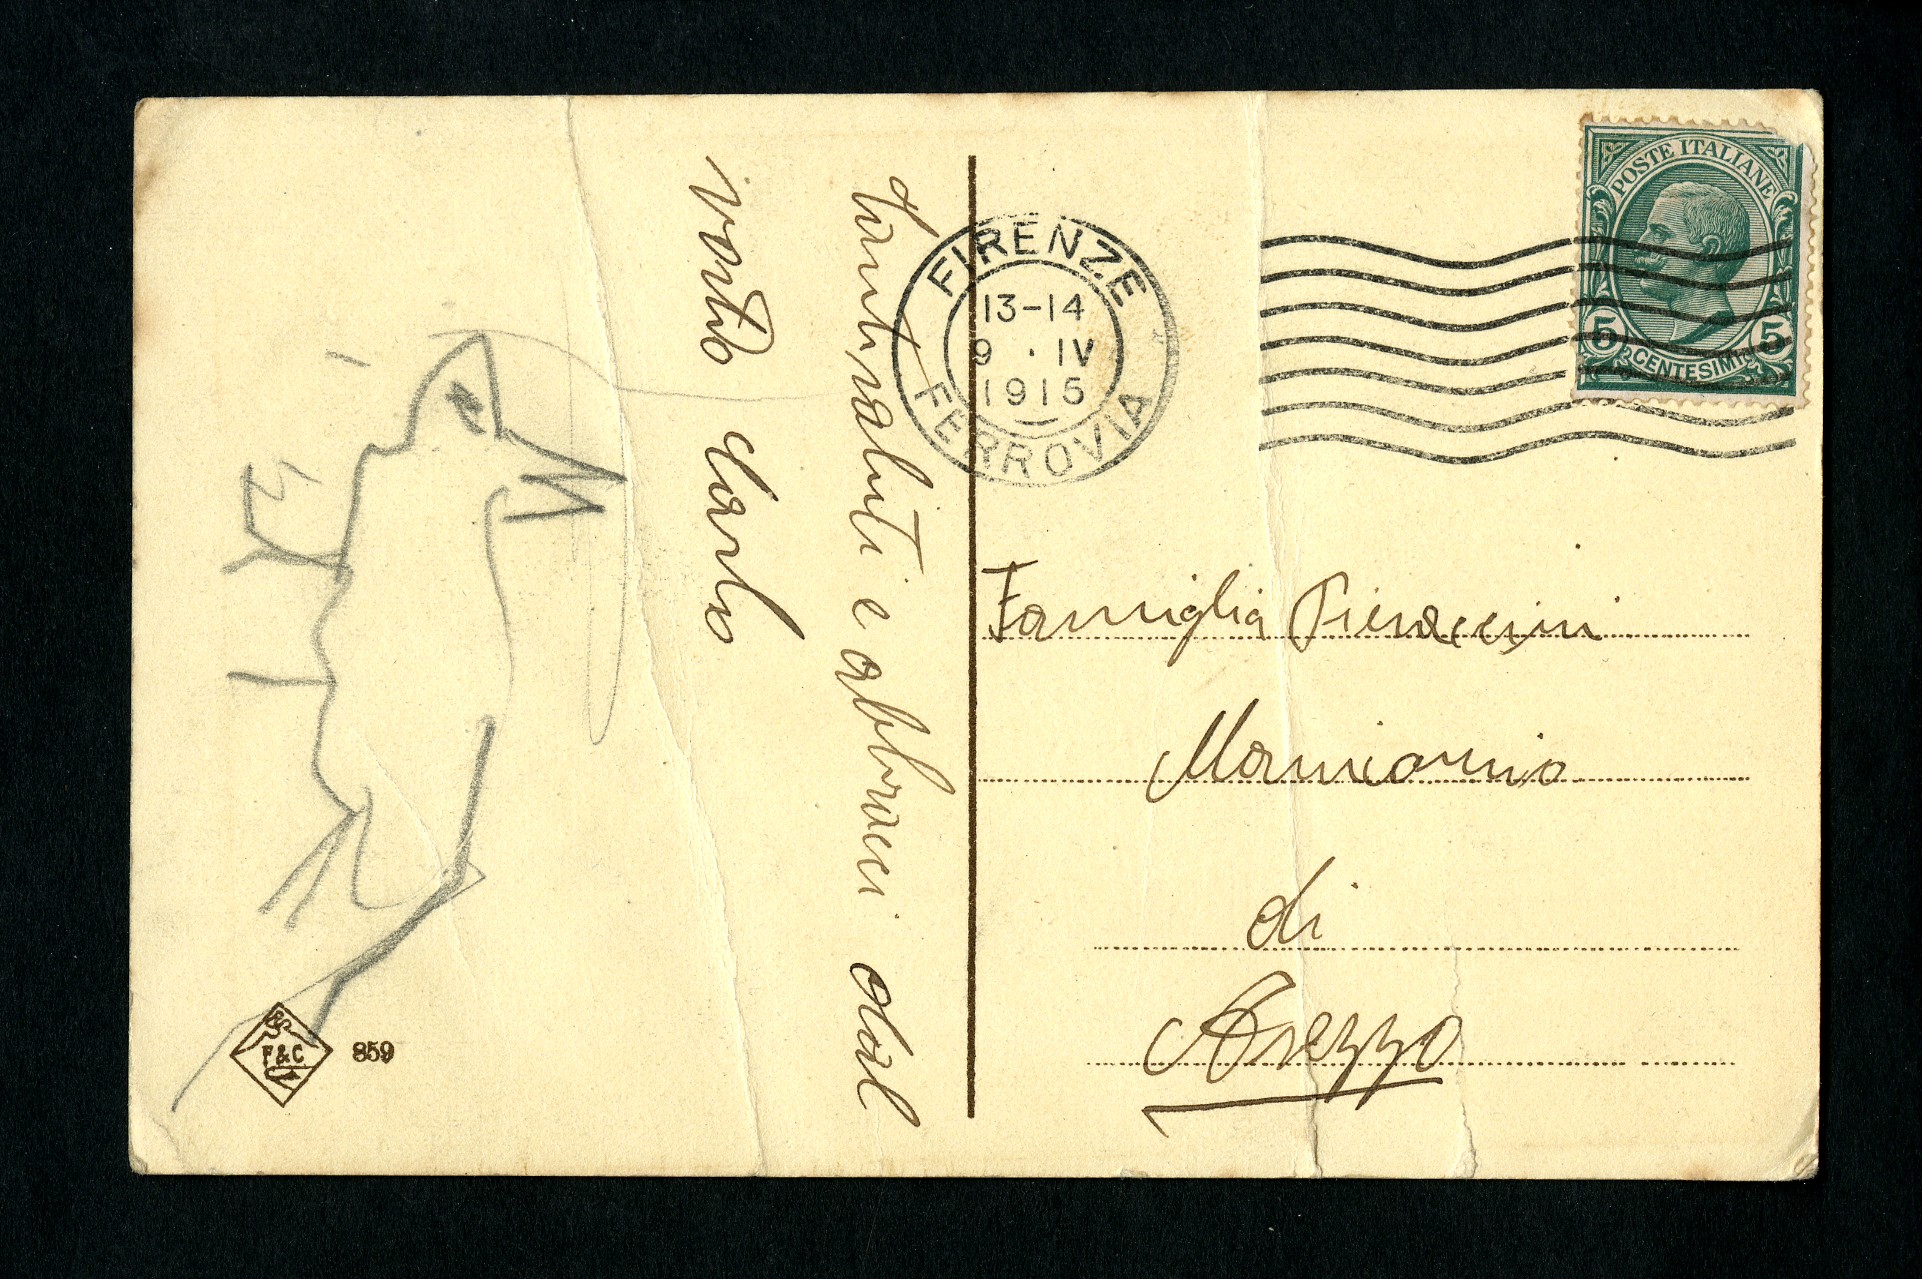 Tanti saluti e abbracci dal
vostro Carlo
FIRENZE
13-14
9 . IV
1915
FERROVIA
POSTE ITALIANE
5 5
CENTESIMI
Famiglia Pieraccini
di
Arezzo
F & C
859